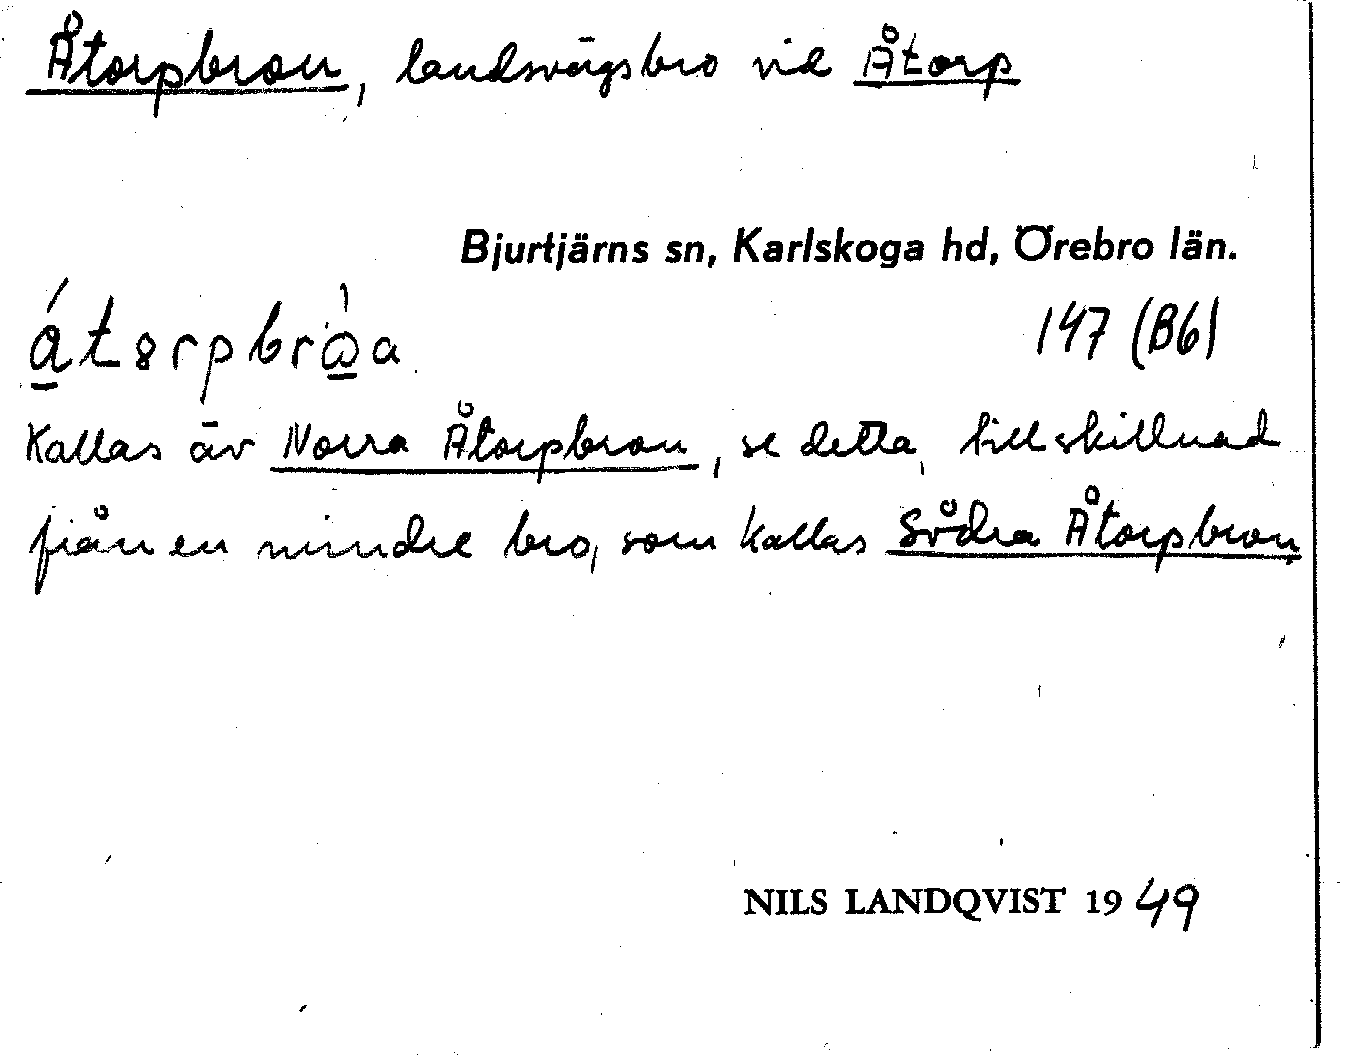 Åtorpbron, landsvägsbro vid Åtorp
Bjurtjärns sn, Karlskoga hd, Örebro län.
147 (B6)
Kallas äv Norra Åtorpbron, se detta, till skillnad
från en mindre bro, som kallas Södra Åtorpbron.
NILS LANDQVIST 1949